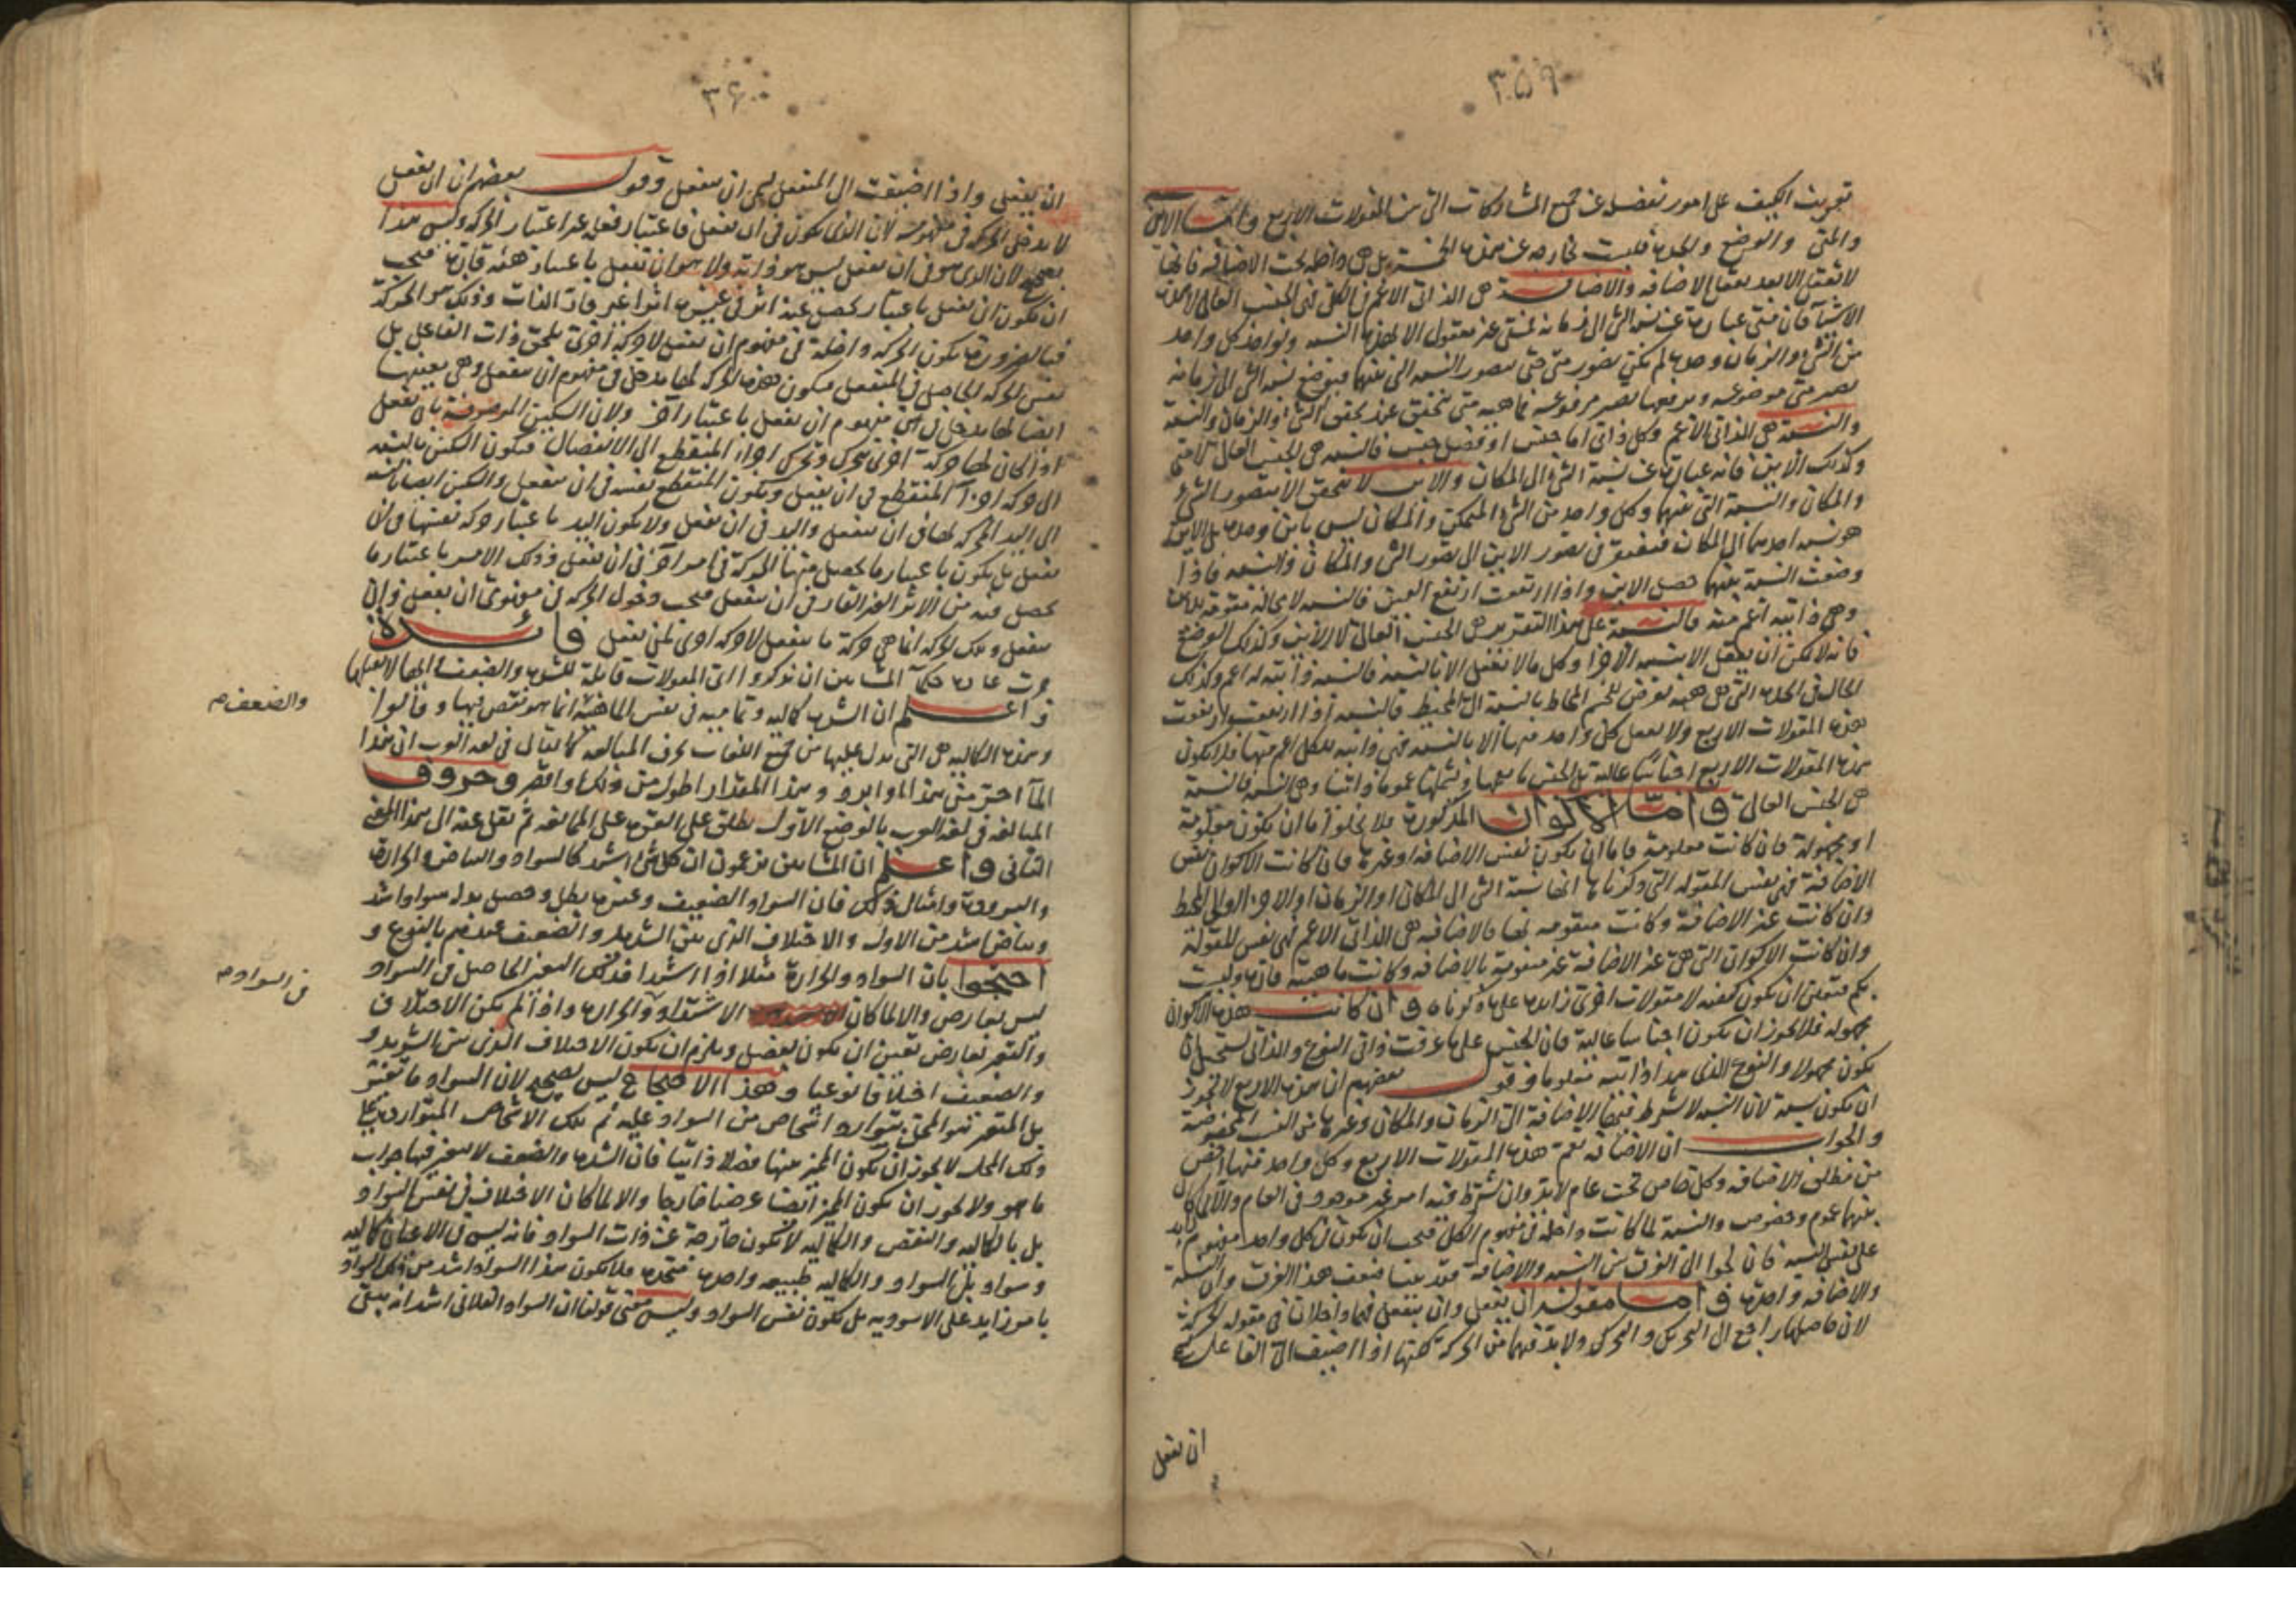 ٣٥٩
تعريف الكيف على امور تفصله عن جميع المشاركات التى من المقولات الاربع واما الاين
والمتى والوضع والجدة فليست خارجة عن هذه الخمسة بل هى داخلة تحت الاضافة فانها
لا تعقل الا بعد تعقل الاضافة والاضافة هى الذاتى الاعم فى الكل فهى الجنس العالى لهذه
الاشيآ فان متى عبارة عن نسبة الشى الى زمانه فمتى غير معقول الا بهذه النسبة ولو اخذ كل واحد
من الشئ والزمان وحده لم يكن تصور متى حتى يتصور النسبة التى بينهما فبوضع نسبة الشى الى زمانه
يصير متى موضوعه وبرفعها يصير مرفوعه فماهية متى تتحقق عند تحقق الشئ والزمان والنسبة
والنسبة هى الذاتى الاعم وكل ذاتى اما جنس او فصل جنس فالنسبة هى الجنس العالى لمتى
وكذلك الاين فانه عبارة عن نسبة الشئ الى المكان والاين لا يتحقق الا بتصور الشئ
والمكان والنسبة التى بينهما وكل واحد من الشئ المتمكن والمكان ليس باين وحده بل الاين
هو نسبة احدهما الى المكان فيفتقر فى تصور الاين الى تصور الشى والمكان والنسبة فاذا
وضعت النسبة بينهما حصل الاين واذا ارتفعت ارتفع الاين فالنسبة لا محالة مقومة للاين
وهى ذاتية اعم منه فالنسبة على هذا التقدير هى الجنس العالى للاين وكذلك الوضع
فانه لا يمكن ان يعقل الا بنسبة الاجزا وكل ما لا يعقل الا بالنسبة فالنسبة ذاتية له اعم وكذلك
الحال فى الجدة التى هى هيئة تعرض للجسم المحاط بالنسبة الى المحيط فالنسبة اذا ارتفعت ارتفعت
هذه المقولات الاربع ولا يعقل كل واحد منها الا بالنسبة فهى ذاتية للكل اعم منها فلا يكون
هذه المقولات الاربع اجناسا عالية بل الجنس ما يعمها ويشملها عموما ذاتيا وهى النسبة فالنسبة
هى الجنس العالى واما الاكوان المذكورة فلا يخلو اما ان يكون معلومة
او مجهولة فان كانت معلومة فاما ان يكون نفس الاضافة او غيرها فان كانت الاكوان نفس
الاضافة فهى نفس المقولة التى ذكرناها انها نسبة الشى الى المكان او الزمان او الاجزا او الى المحيط
وان كانت غير الاضافة وكانت متقومة بها فالاضافة هى الذاتى الاعم فهى نفس المقولة
وان كانت الاكوان التى هى غير الاضافة غير متقومة بالاضافة وكانت ماهية قارة وليست
بكم فتعين ان يكون كيفية لا مقولات اخرى زايدة على ما ذكرناه وان كانت هذه الاكوان
مجهولة فلا يجوز ان يكون اجناسا عالية فان الجنس على ما عرفت ذاتى النوع والذاتى يستحيل ان
يكون مجهولا والنوع الذى هذا ذاتيه معلوما وقول بعضهم ان هذه الاربع لا يجوز
ان يكون نسبة لان النسبة لا يشترط فيها الاضافة الى الزمان والمكان وغيرهما من النسب المخصوصة
والجواب ان الاضافة تعم هذه المقولات الاربع وكل واحد منها اخص
من مطلق الاضافة وكل خاص تحت عام لا بد وان يشترط فيه امر غير موجود فى العام والا لما كان
بينهما عموم وخصوص والنسبة لما كانت داخلة فى مفهوم الكل فيجب ان يكون فى كل واحد مفهوم زايد
على نفس النسبة فان لجوا الى الفرق بين النسبة والاضافة فقد بينا ضعف هذا الفرق وان النسبة
والاضافة واحدة واما مقولتى ان يفعل وان ينفعل فهما داخلان فى مقولة الحركة
لان حاصلهما راجع الى التحريك والتحرك ولا بد فيهما من الحركة لكنها اذا اضيفت الى الفاعل سمى
ان يفعل
٣٦٠
ان يفعل واذا اضيفت الى المنفعل سمى ان ينفعل وقول بعضهم ان ان يفعل
لا يدخل الحركة فى مفهومه لان الذى يكون فى ان يفعل فاعتبار فعله غير اعتبار الحركة وليس هذا
بصحيح لان الذى هو فى ان يفعل ليس هو ذاته ولا هو ان يفعل باعتبار هيئة قارة فيجب
ان يكون ان يفعل باعتبار يحصل عنه اثر فى غيره اثرا غير قار الذات وذلك هو الحركة
فبالضرورة يكون الحركة داخلة فى مفهوم ان يفعل لا حركة اخرى تلحق ذات الفاعل بل
نفس الحركة الحاصل فى المنفعل فيكون هذه الحركة لها مدخل فى مفهوم ان ينفعل وهى بعينها
ايضا لها مدخل فى مفهوم ان يفعل باعتبار آخر ولان السكين الموصوفة بان يفعل
اذا كان لها حركة اخرى تتحرك وتحرك اجزاء المنقطع الى الانفصال فيكون السكين بالنسبة
الى حركة اجزآ المنقطع فى ان يفعل ويكون المنقطع نفسه فى ان ينفعل والسكين ايضا بالنسبة
الى اليد المحركة لها فى ان ينفعل واليد فى ان يفعل ولا يكون اليد باعتبار حركة نفسها فى ان
يفعل بل يكون باعتبار ما يحصل منها الحركة فى امر آخر فى ان يفعل وذلك الامر باعتبار ما
يحصل فيه من الاثر الغير القار فى ان ينفعل فيجب دخول الحركة فى مفهومى ان يفعل وان
ينفعل وتلك الحركة انما هى حركة ما ينفعل لا حركة اخرى لمن يفعل فائدة
جرت عادة حكمآ المشايين ان يذكروا اى المقولات قابلة للشدة والضعف وايها لا تقبلهما
واعلم ان الشدة كمالية وتمامية فى نفس الماهية انما هو نقص فيها وقالوا
والضعف م
وهذه الكمالية هى التى يدل عليها من جميع اللغات بحرف المبالغة كما يقال فى لغة العرب ان هذا
المآ احر من هذا او ابرد وهذا المقدار اطول من ذلك او اقصر وحروف
المبالغة فى لغة العرب بالوضع الاول يطلق على القوة على الممانعة ثم نقل عنه الى هذا المعنى
الثانى واعلم ان المشايين يزعمون ان كل شى اشد كالسواد والبياض والحرارة
والبرودة وامثال ذلك فان السواد الضعيف وغيره يبطل وحصل بدله سواد اشد
وبياض اشد من الاول والاختلاف الذى بين الشديد والضعيف عندهم بالنوع و
احتجوا بان السواد والحرارة مثلا اذا اشتدا فذلك التغير الحاصل فى السواد
ليس بعارض والا لما كان الاشتداد والحرارة واذا لم يكن الاختلاف
فى السواد م
والتغير بعارض تعين ان يكون بفصل ويلزم ان يكون الاختلاف الذى بين الشديد و
والضعيف اختلافا نوعيا وهذا الاحتجاج ليس بصحيح لان السواد ما تغير
بل المتغير هو المحل بتوارد اشخاص من السواد عليه ثم تلك الاشخاص المتواردة على
ذلك المحل لا يجوز ان يكون المميز بينها فصلا ذاتيا فان الشدة والضعف لا يتغير فيها جواب
ما هو ولا يجوز ان يكون المميز ايضا عرضا خارجا والا لما كان الاختلاف فى نفس السواد
بل بالكمالية والنقص والكمالية لا تكون خارجة عن ذات السواد فانه ليس فى الاعيان كمالية
وسواد بل السواد والكمالية طبيعة واحدة متحدة فلا يكون هذا السواد اشد من ذلك السواد
بامر زايد على الاسودية بل يكون نفس السواد وليس معنى قولنا ان السواد الفلانى اشد انه يبقى